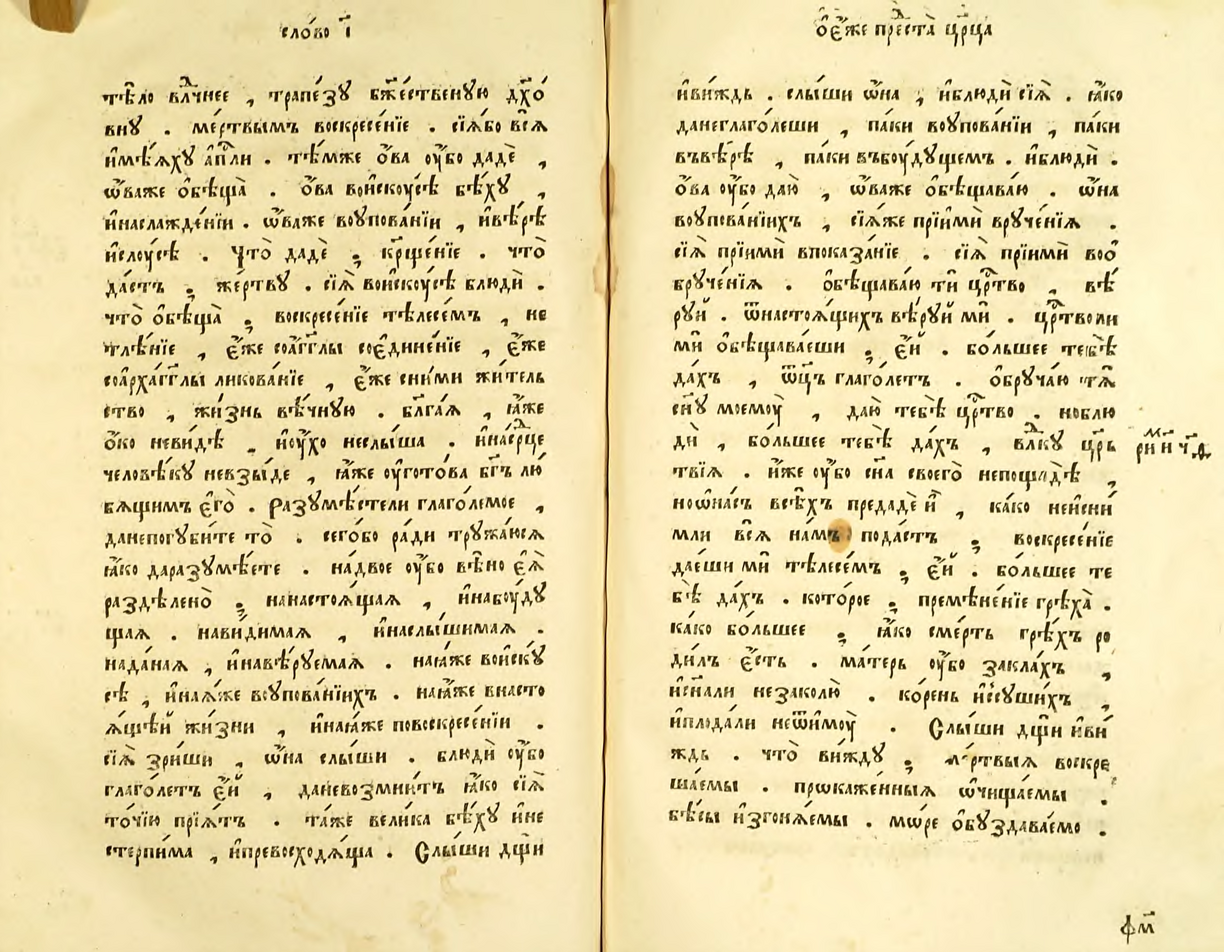 сло́во і҃
тѣ́ло влⷣчнее , трапе́зꙋ бж҃е́ственꙋю дх҃о́
внꙋ . ме́ртвымъ воскресе́нїе . сїѧ̑бо всѧ̑
и҆мѣ́ѧхꙋ а҆пⷭ҇ли . тѣ́мже ѻ҆́ва ᲂу҆́бо дадѐ ,
ѡ҆́важе ѻ҆бѣща̀ . ѻ҆́ва воискоусѣ бѣ́хꙋ ,
и҆наслажде́нїи . ѡ҆́важе воупова́нїи , и҆вѣ́рѣ
и҆слоусѣ . Что̀ дадѐ ; кр҃ще́нїе . что̀
да́стъ ; же́ртвꙋ . сїѧ̑ воискоусѣ блюди̑ .
что̀ ѻ҆бѣща̀ ; воскресе́нїе тѣлесе́мъ , не
тлѣ́нїе , є҆́же соа҆́гг҃лы соє҆дине́нїе , є҆́же
соа҆рха́гг҃лы ликова́нїе , є҆́же сни́ми жи́тель
ство , жи́знь вѣ́чнꙋю . бл҃га́ѧ , ꙗ҆́же
ѻ҆́ко неви́дѣ , ноу҆́хо неслы́ша . и҆насрⷣце
человѣ́кꙋ невзы́де , ꙗ҆́же ᲂу҆гото́ва бг҃ъ лю́
бѧщимъ є҆го̀ . Разꙋмѣ́стели глаго́лемое ,
данепогꙋби́те то̀ . сего́бо ра́ди трꙋжа́юсѧ
ꙗ҆́ко даразꙋмѣ́ете . на́двое ᲂу҆́бо вѣ́но є҆ѧ̀
раздѣлено̀ ; нанастоѧ́щаѧ , и҆набоу́дꙋ
щаѧ . нави́димаѧ , и҆наслы́шимаѧ .
нада́наѧ , и҆навѣ́рꙋемаѧ . наꙗ҆́же вои́скꙋ
сѣ , и҆наꙗ҆́же воупова́нїихъ . наꙗ҆́же внасто
ѧ́щѣй жи́зни , и҆наꙗ҆́же повоскресе́нїи .
сїѧ̑ зри́ши , ѡ҆́на слы́ши . блюди̑ ᲂу҆́бо
глаго́летъ є҆́й , даневозмни́тъ ꙗ҆́ко сїѧ̑
то́чїю прїѧ́тъ . та́же вели́ка бѣ́хꙋ и҆не
стерпи́ма , и҆превосходѧ́ща . Слы́ши дщ҃и
ѻ҆є҆́же преⷣста̀ цр҃ца
и҆ви́ждь . слы́ши ѡ҆́на , и҆блюди̑ сїѧ̑ . ꙗ҆́ко
данеглаго́леши , па́ки воупова́нїи , па́ки
въвѣ́рѣ , па́ки въбоу́дꙋщемъ . и҆блюди̑ .
ѻ҆́ва ᲂу҆́бо даю̀ , ѡ҆́важе ѻ҆бѣщава́ю . ѡ҆́на
воупова́нїихъ , сїѧ̑же прїими̑ врꙋче́нїѧ .
сїѧ̑ прїими̑ впоказа́нїе . сїѧ̑ прїими̑ воѻ҆
брꙋче́нїѧ . ѻ҆бѣщава́ю ти̑ црⷭ҇тво , вѣ́
рꙋй . ѿнастоѧ́щихъ вѣ́рꙋй ми̑ . црⷭ҇тволи
ми̑ ѻ҆бѣщава́еши ; є҆́й . бо́льшее тебѣ̀
да́хъ , ѿц҃ъ глаго́летъ . ѻ҆брꙋча́ю тѧ̑
сн҃ꙋ моемоу̀ , даю̀ тебѣ̀ црⷭ҇тво . ноблю
ди̑ , бо́льшее тебѣ̀ да́хъ , влⷣкꙋ црⷭ҇
твїѧ . и҆́же ᲂу҆́бо сн҃а своего̀ непощадѣ̀ ,
ноѡ҆на́съ всѣ́хъ предадѐ и҆̀ , ка́ко неи҆сни́
мли всѧ̑ на́мъ пода́стъ ; воскресе́нїе
дае́ши ми̑ тѣлесе́мъ ; є҆́й . бо́льшее те
бѣ̀ да́хъ . кото́рое ; премѣне́нїе грѣха̀ .
ка́ко бо́льшее ; ꙗ҆́ко сме́рть грѣ́хъ ро
ди́лъ є҆́сть . ма́терь ᲂу҆́бо закла́хъ ,
и҆сн҃али незаколю̀ . ко́рень и҆ссꙋши́хъ ,
и҆плода́ли неѿимоу̀ . Слы́ши дщ҃и и҆ви́
ждь . что̀ ви́ждꙋ ; ме́ртвыѧ воскре
ша́емы . прѡкаже́нныѧ ѡ҆чища́емы .
бѣ́сы и҆згонѧ́емы . мѡ́ре ѻ҆бꙋздава́емо .
фм҃